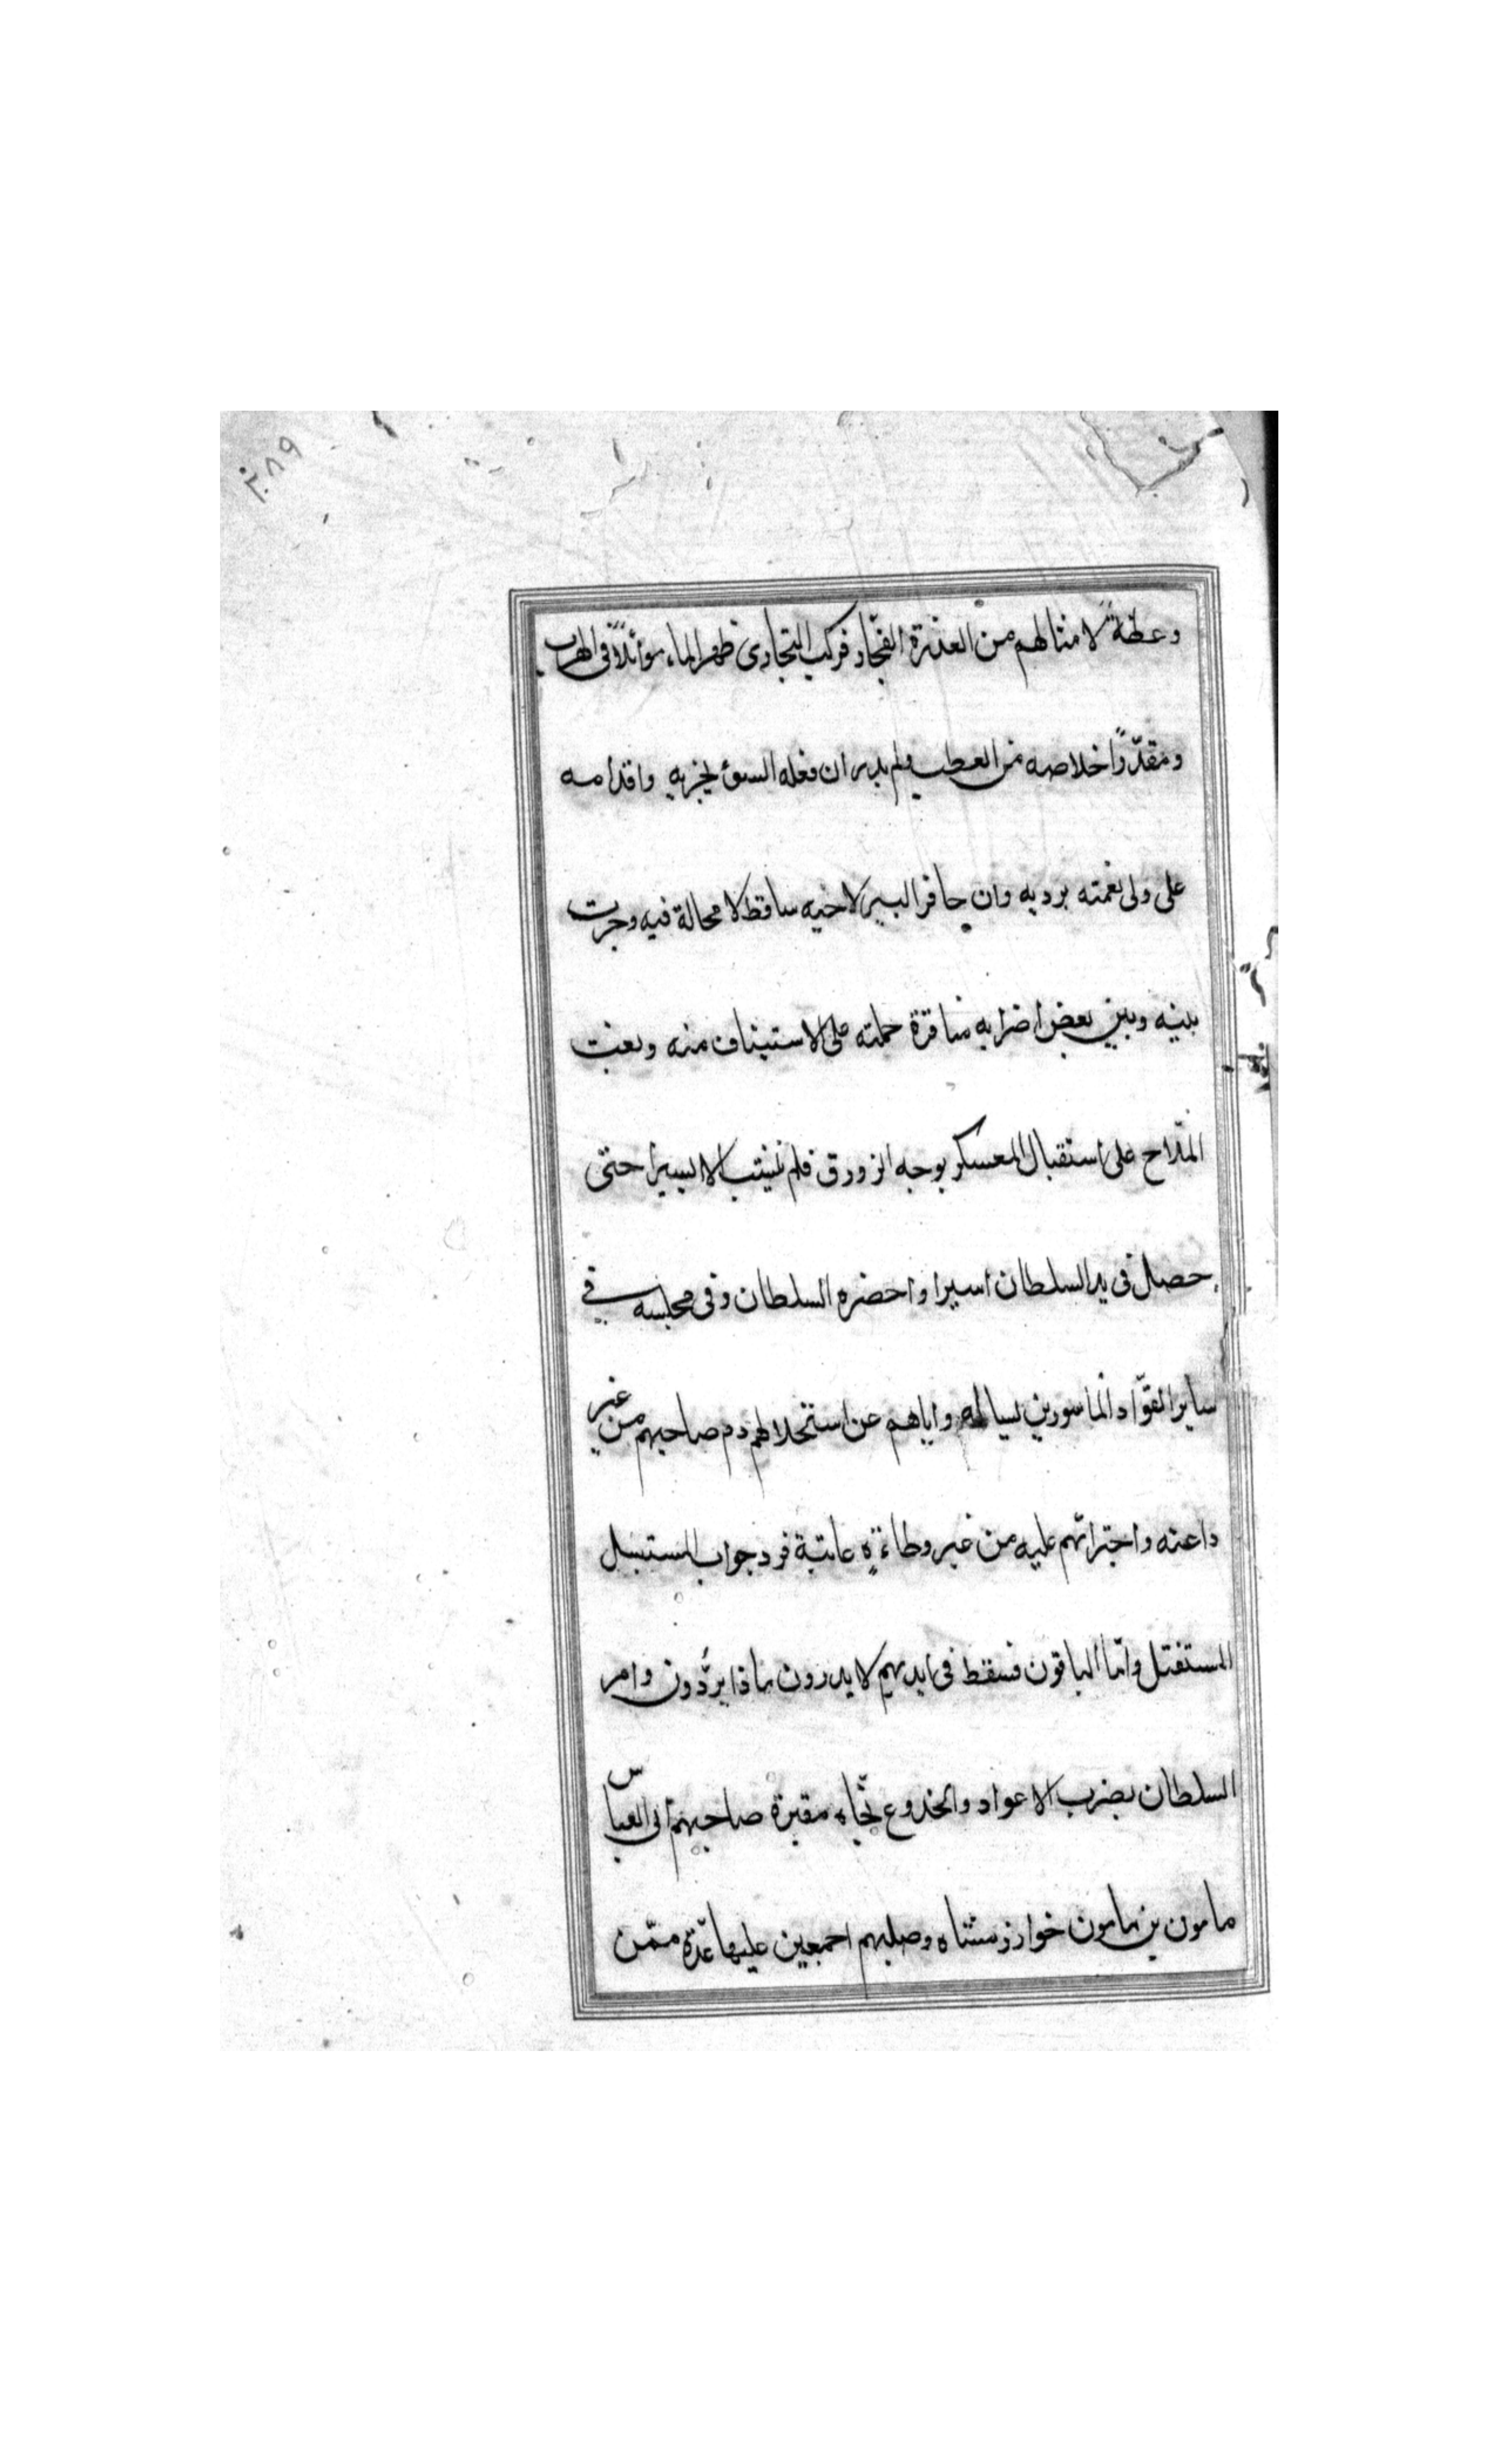 ٢٠٨٩
وعظةً لامثالهم من الغدرة الفجّار فركب البخارى ظهر الماء موئلاً فى الهرب
ومقدّراً خلاصه من العطب ولم يدر ان فعله السوئ يخزيه واقدامه
على ولى نعمته يرديه وان حافر البير لاخيه ساقط لا محالة فيه وجرت
بينه وبين بعض اضرابه مناقرة حملته على الاستيناف منه وبعثت
الملّاح على استقبال المعسكر بوجه الزورق فلم ينشب الا يسيرا حتى
حصل فى يد السلطان اسيرا واحضره السلطان وفى مجلسه فى
ساير القوّاد الماسورين يساله واياهم عن استحلالهم دم صاحبهم من غير
داعنه واجترائهم عليه من غير وطاءةٍ عاتبة فرد جواب المستبسل
المستقتل وامّا الباقون فسقط فى ايديهم لا يدرون ماذا يردّون وامر
السلطان بضرب الاعواد والجذوع تجاه مقبرة صاحبهم ابى العباس
مامون بن مامون خوارزمشاه وصلبهم اجمعين عليها عدّة ممّن